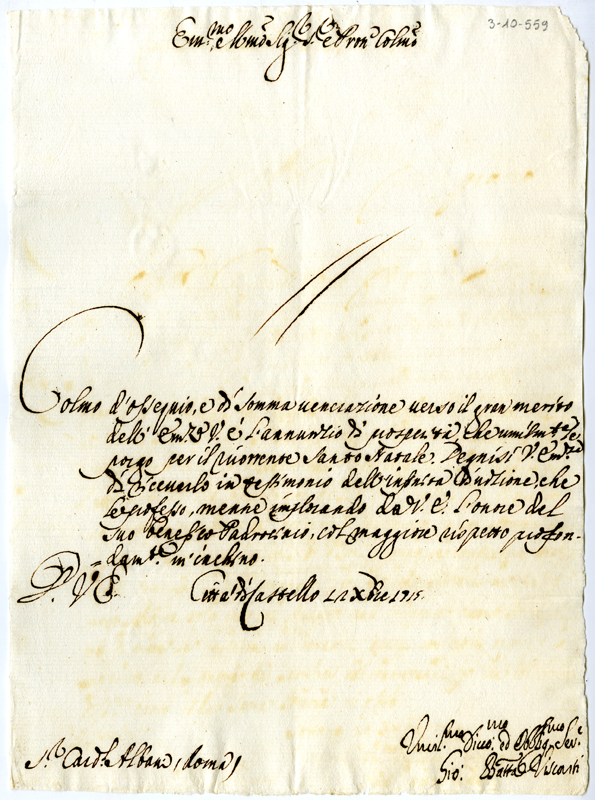 3-10-559
Em:mo e Rmo Sig:r Sig:r e Pron Colmo
Colmo d'ossequio, e di somma venerazione verso il gran merito
dell' Emza V. è l'annunzio di prosperità, che umilmte le
porgo per il ricorrente Santo Natale. Degnisi V. Emza
di riceverlo in testimonio dell' infinita divozione, che
le professo, mentre implorando da V. E. l'onore del
suo benefico Padrocinio, col maggiore rispetto profon-
damte m' inchino.
D. V. E.
Città di Castello 12 Xbre 1715.
Sr Cardl Albani (Roma)
Umil:mo Divo:mo ed Obblig:mo Ser:e
Gio: Batta Visconti